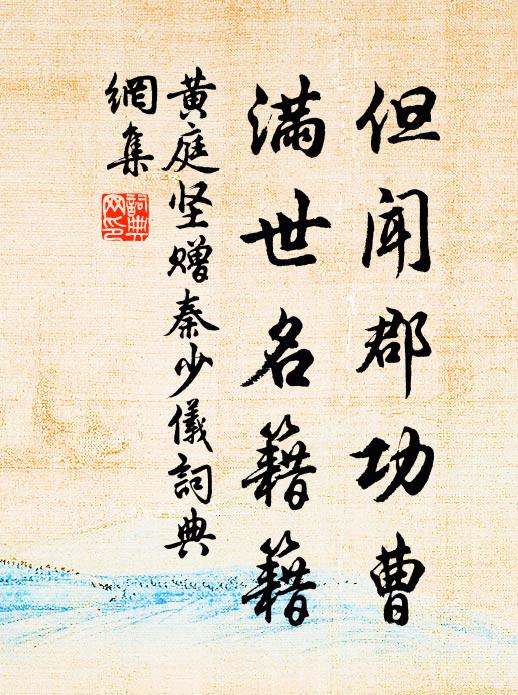 但闻郡功曹
满世名籍籍
黄庭坚赠秦少仪词典
网集
词典
网印